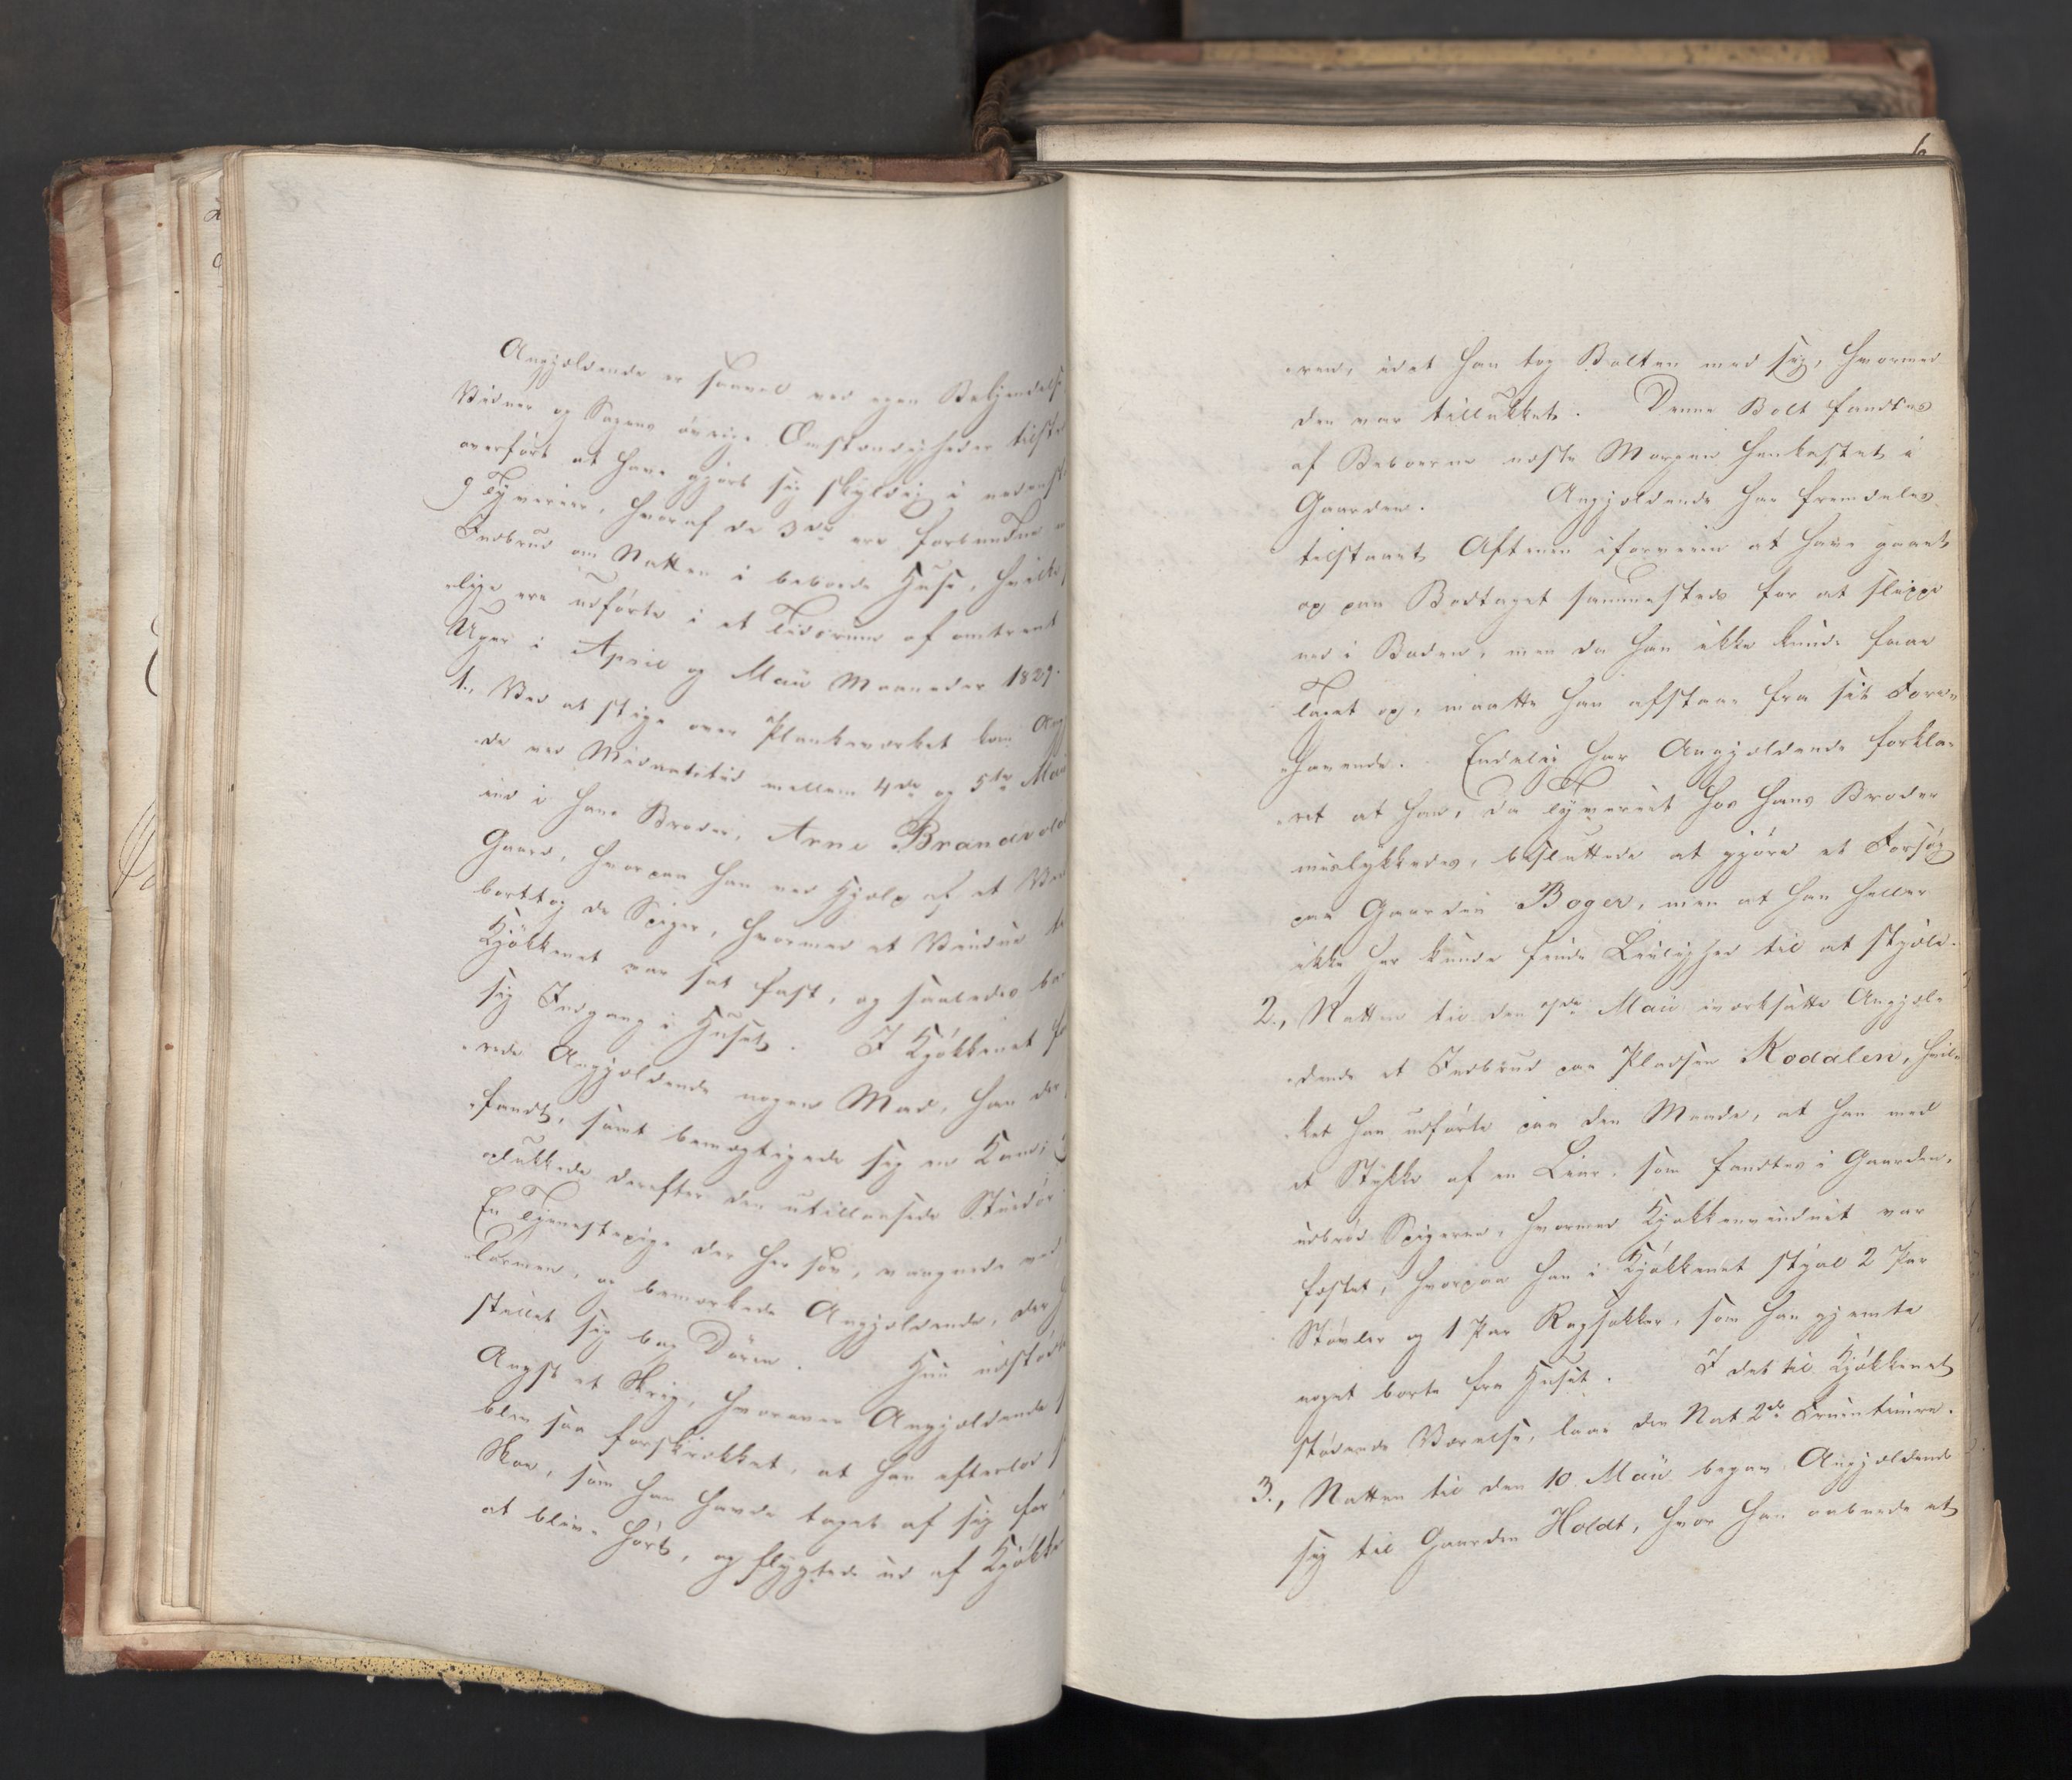 Angjældende er saavel ved egen Bekjendelse
Vidner og Sagens övrige Omstændigheder tilst
overført at have gjort sig skyldig i nedenst
9 Tyverier, hvoraf de 3de ere forbundne
Indbrud om Natten i beboede Huse, hvilke
"lige ere udførte i et Tidsrum af omtrent
Uger i April og Maii Maaneder 1829.
1., Ved at stige over Plankeværket kom Ang
"de ved Midnatstid mellem 4de og 5te Maii
ind i hans Broder, Arne Brandvold
Gaard, hvorpaa han ved Hjælp af et
borttog de Spiger, hvormed et Vindue
Kjökkenet var sat fast, og saaledes
sig Indgang i Huset. I Kjökkenet
"rede Angjældende nogen Mad, han der
"fandt, samt bemægtigede sig en
oplukkede derefter den utillaasede Stuedör
En Tjenestepige der her sov, vaagnede ved
Larmen, og bemærkede Angjældende, der
stillet sig bag Dören. Hun udstødte
Angst et Skrig, hvorover Angjældende
blev saa forskrækket, at han efterlod
Skoe, som han havde taget af sig for
at blive hört, og flygtede ud af Kjökke
6
"ren, idet han tog Bolten med sig, hvormed
den var tillukket. Denne Bolt fandtes
af Beboerne næste Morgen henkastet i
Gaarden. Angjældende har fremdeles
tilstaaet Aftenen iforveien at have gaaet
op paa Bodtaget sammesteds for at slippe
ned i Boden, men da han ikke kunde faae
Taget op, maatte han afstaae fra sit Fore"
"havende. Endelig har Angjældende forkla"
"ret at han, da Tyveriet hos hans Broder
mislykkedes, besluttede at gjöre et Forsøg
paa Gaarden Boger, men at han heller
ikke her kunde finde Leilighed til at stjæle.
2., Natten til den 7de Maii iværksatte Angjæl"
"dende et Indbrud paa Pladsen Rodalen, hvil"
"ket han udførte paa den Maade, at han med
et Stykke af en Liaa, som fandtes i Gaarden,
udbrød Spigeren, hvormed Kjøkkenvinduet var
fæstet, hvorpaa han i Kjøkkenet stjal 2 Par
Støvler og 1 Par Ragsokker, som han gjemte
noget borte fra Huset. I det til Kjökkenet
stødende Værelse, laae den Nat 2de Fruentimre.
3., Natten til den 10 Maii begav Angjældende
sig til Gaarden Holdt, hvor han aabnede et